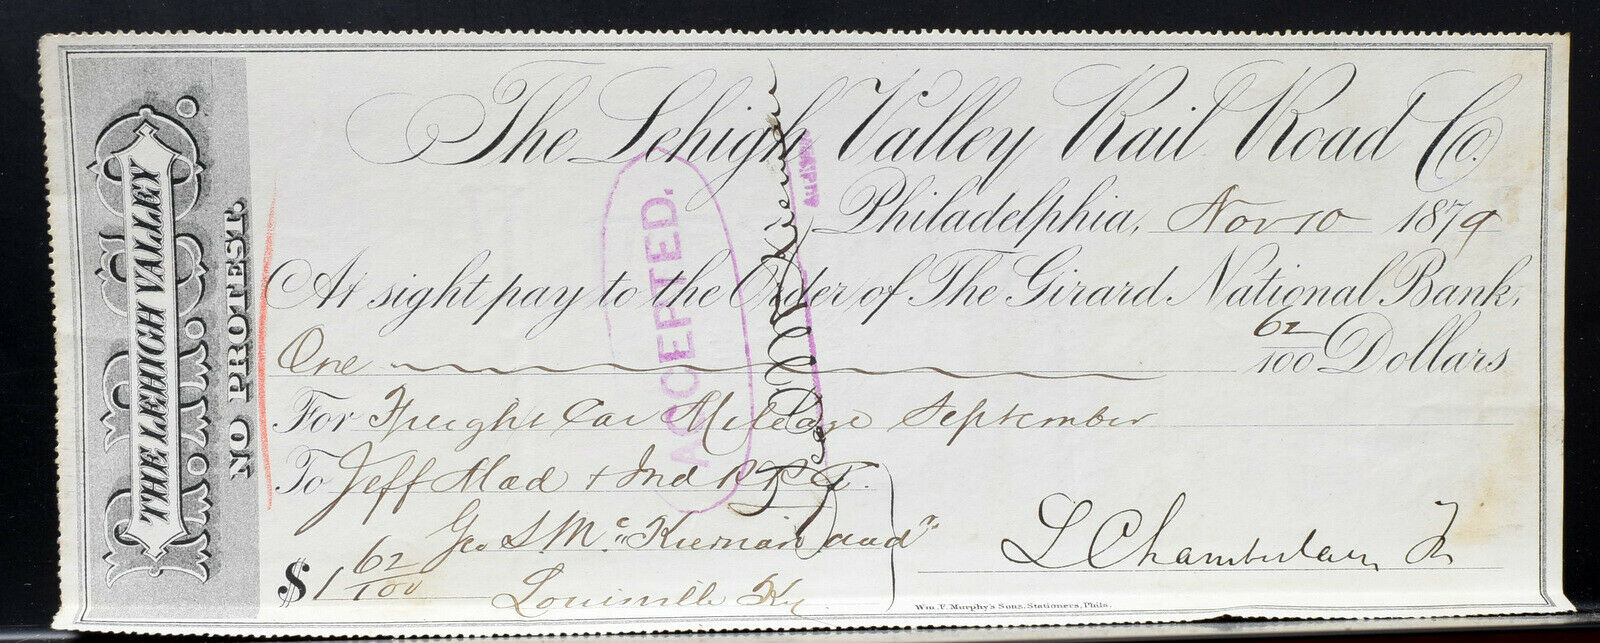 THE LEHIGH VALLEY
R.R. Co.
NO PROTEST.
The Lehigh Valley Rail Road Co.
Philadelphia, Nov 10 1879
At sight pay to the Order of The Girard National Bank,
One 62/100 Dollars
For Freight Car Mileage September
To Jeff Mad & Ind R R Co.
Geo S. McKiernan aud
$1 62/100 Louisville Ky
L Chamberlain Tr
Wm. F. Murphy's Sons, Stationers, Phila.
ACCEPTED.